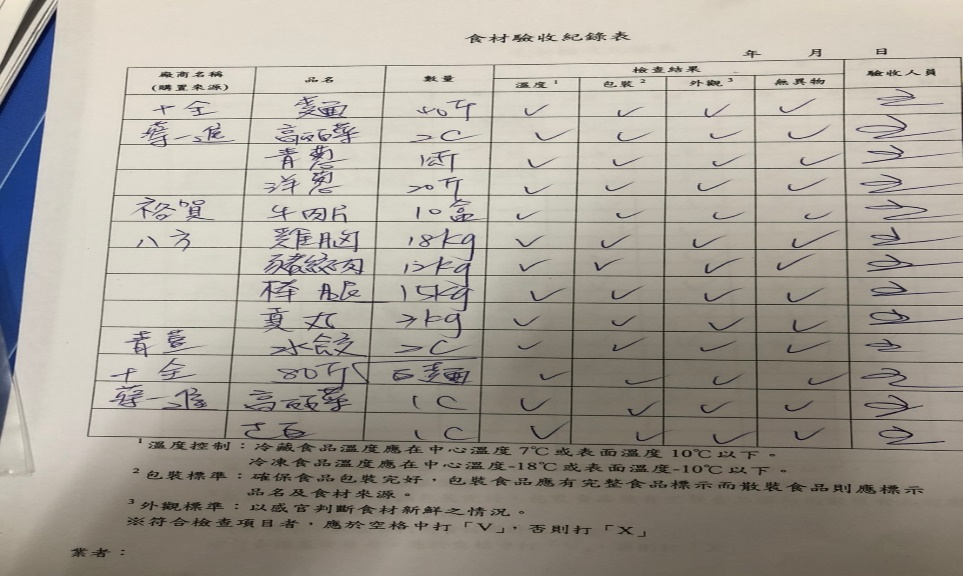 食材驗收紀錄表
年 月 日
廠商名稱 (購置來源) 品名 數量 檢查結果 驗收人員
溫度¹ 包裝² 外觀³ 無異物
十全 麵 40斤 ✓ ✓ ✓ ✓
一進 高麗菜 2C ✓ ✓ ✓ ✓
青蔥 ✓ ✓ ✓ ✓
洋蔥 20斤 ✓ ✓ ✓ ✓
裕賀 牛肉片 10盒 ✓ ✓ ✓ ✓
八方 雞胸 18kg ✓ ✓ ✓ ✓
豬絞肉 12kg ✓ ✓ ✓ ✓
棒腿 15kg ✓ ✓ ✓ ✓
丸 3kg ✓ ✓ ✓ ✓
水餃 2C ✓ ✓ ✓ ✓
十全 80斤 麵 ✓ ✓ ✓ ✓
一進 高麗菜 1C ✓ ✓ ✓ ✓
1C ✓ ✓ ✓ ✓
¹溫度控制：冷藏食品溫度應在中心溫度 7℃或表面溫度 10℃以下。
冷凍食品溫度應在中心溫度-18℃或表面溫度-10℃以下。
²包裝標準：確保食品包裝完好，包裝食品應有完整食品標示而散裝食品則應標示
品名及食材來源。
³外觀標準：以感官判斷食材新鮮之情況。
※符合檢查項目者，應於空格中打「V」，否則打「X」
業者：